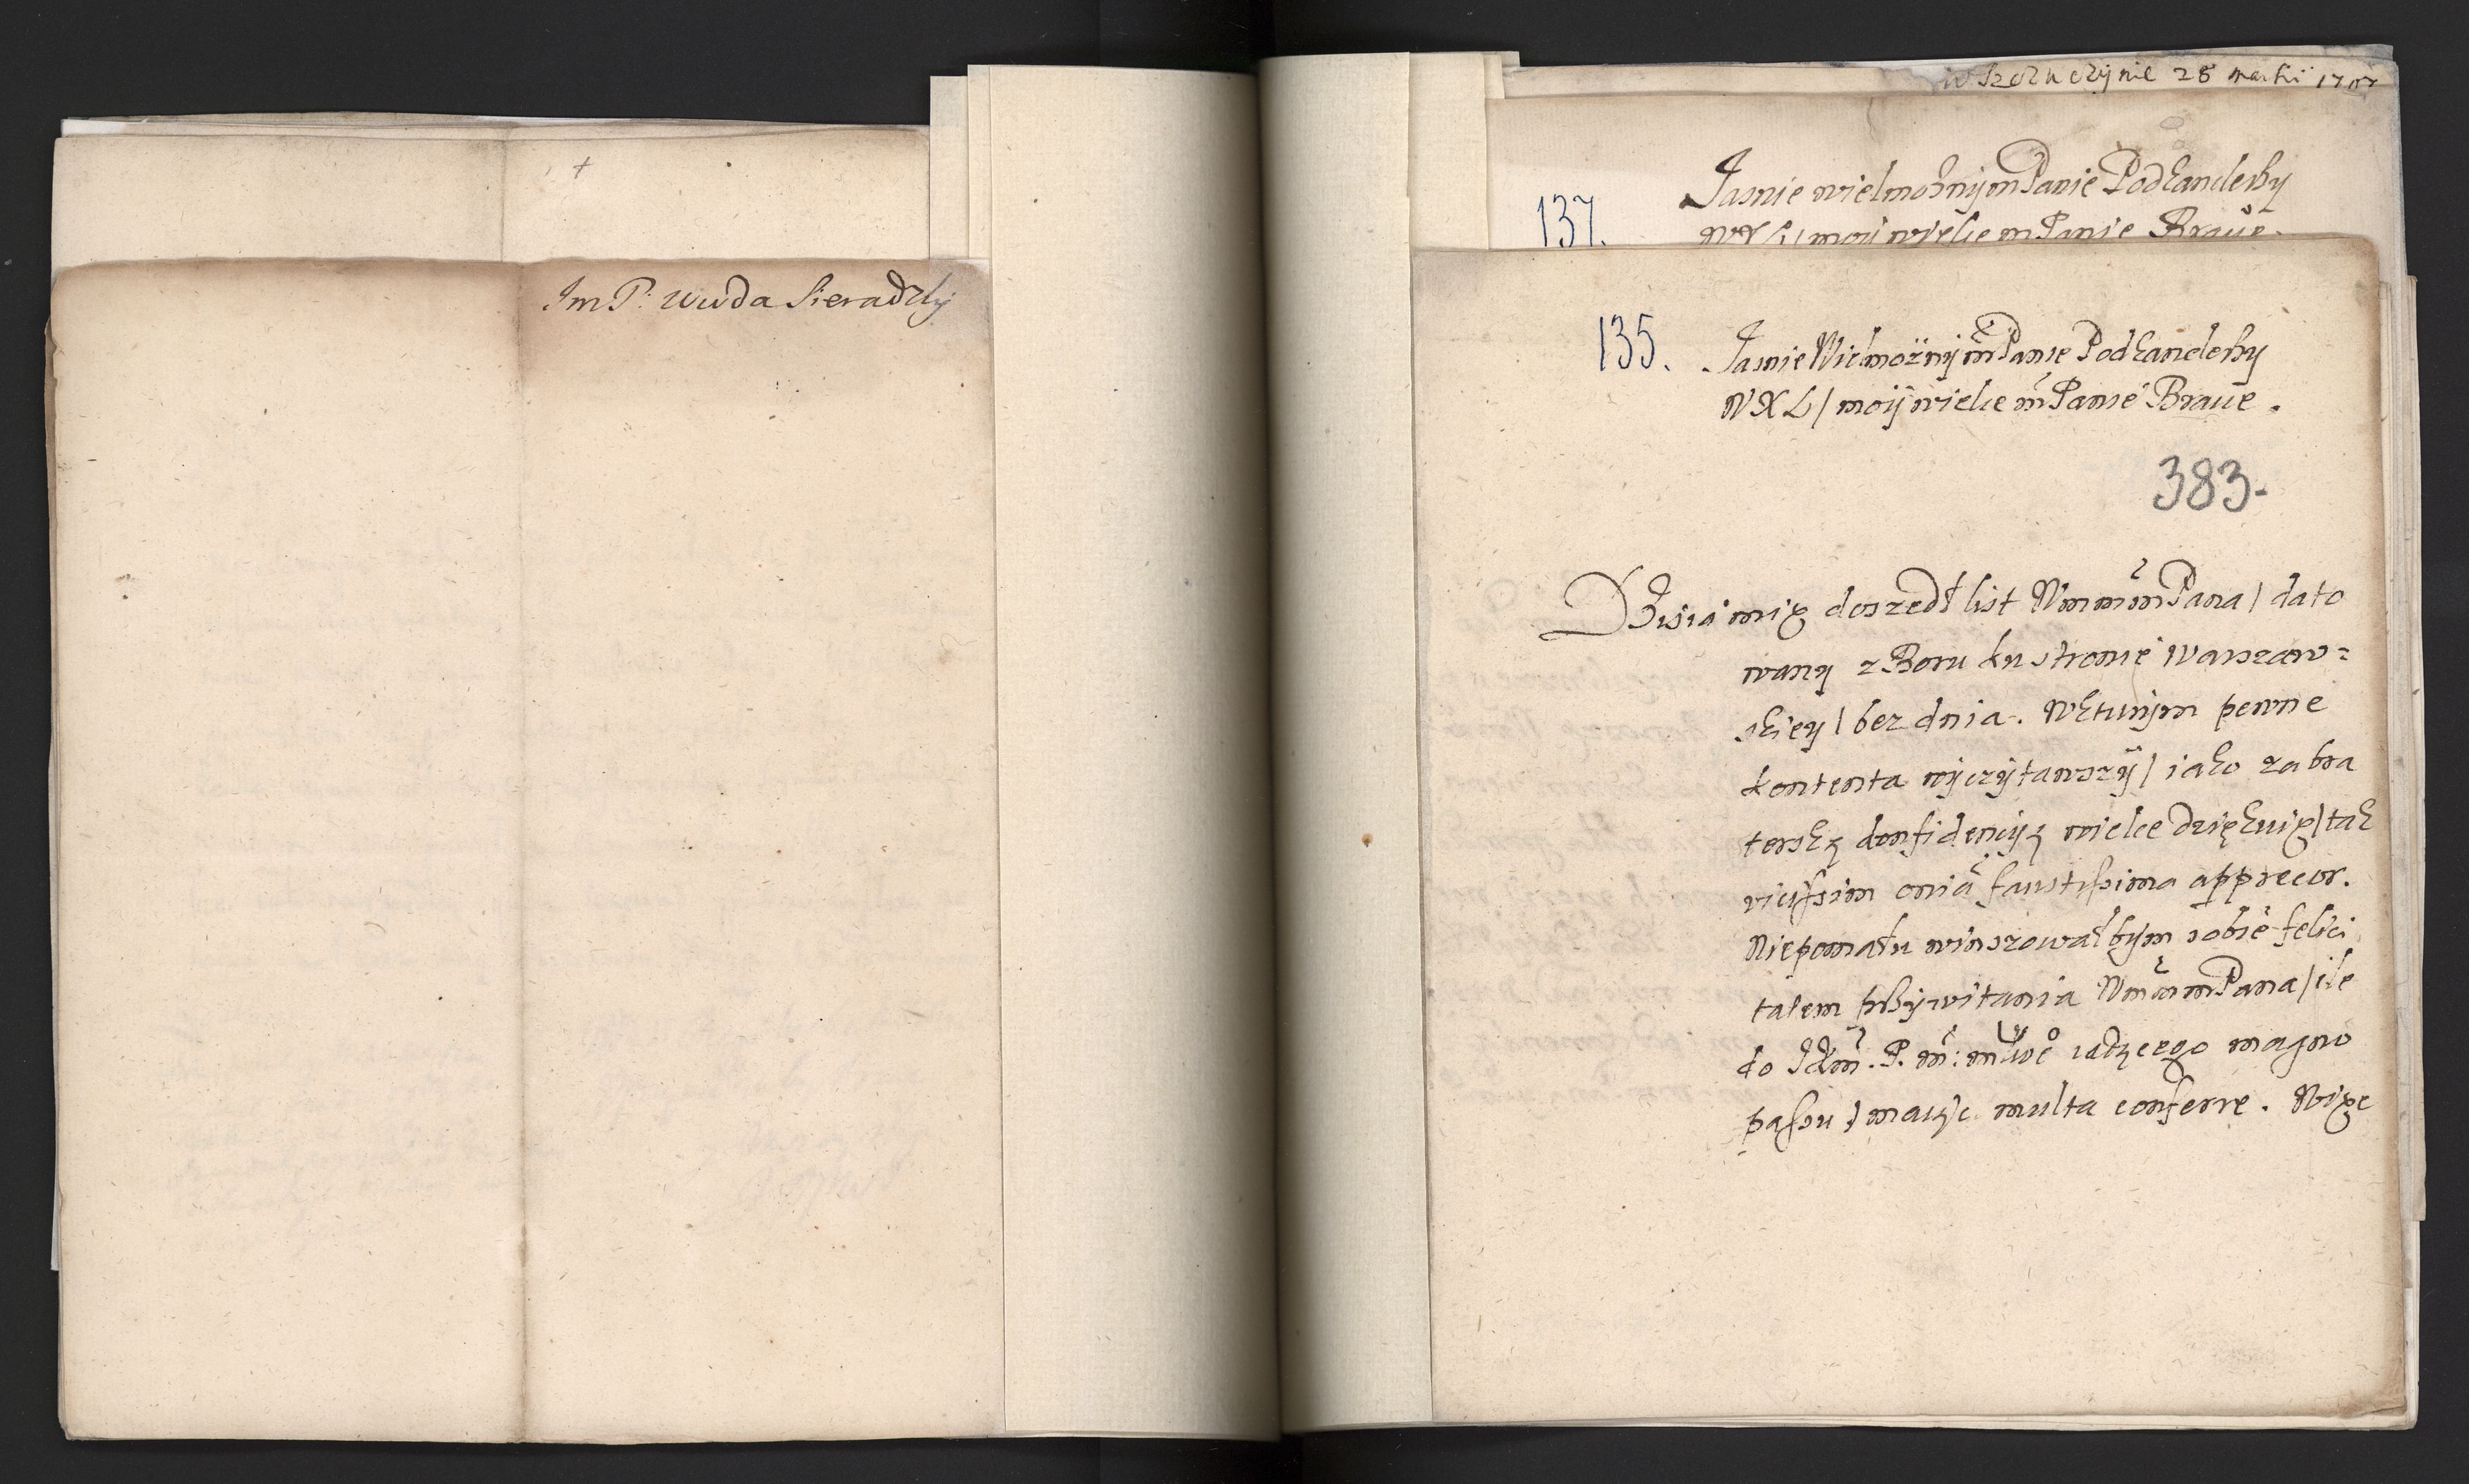 Im P: Wwda Sieradzky
w Szczuczynie 28 martii 1707
137.
Jasnie wielmożnym Panie Podkanclerzy
WXL/ moy wielce m Panie Bracie.
135. Jasnie Wielmożny m Panie Podkanclerzy
WXL/ moy wielce m Panie Bracie.
383.
Dzisia mię doszedł list Wm m m Pana/ dato
wany z Boru ku stronie Warszaw=
skiey/ bez dnia. W kturym pewne
kontenta wyczytawszy/ iako za bra
terską konfidencyą wielce dziękuię/ tak
vicissim onia faustissima apprecor.
Niepomału winszowałbym sobie felici
tatem przywitania Wm m m Pana/ ile
do m. P. m: iadącego magno
passu/ maiąc multa conferre. Więc